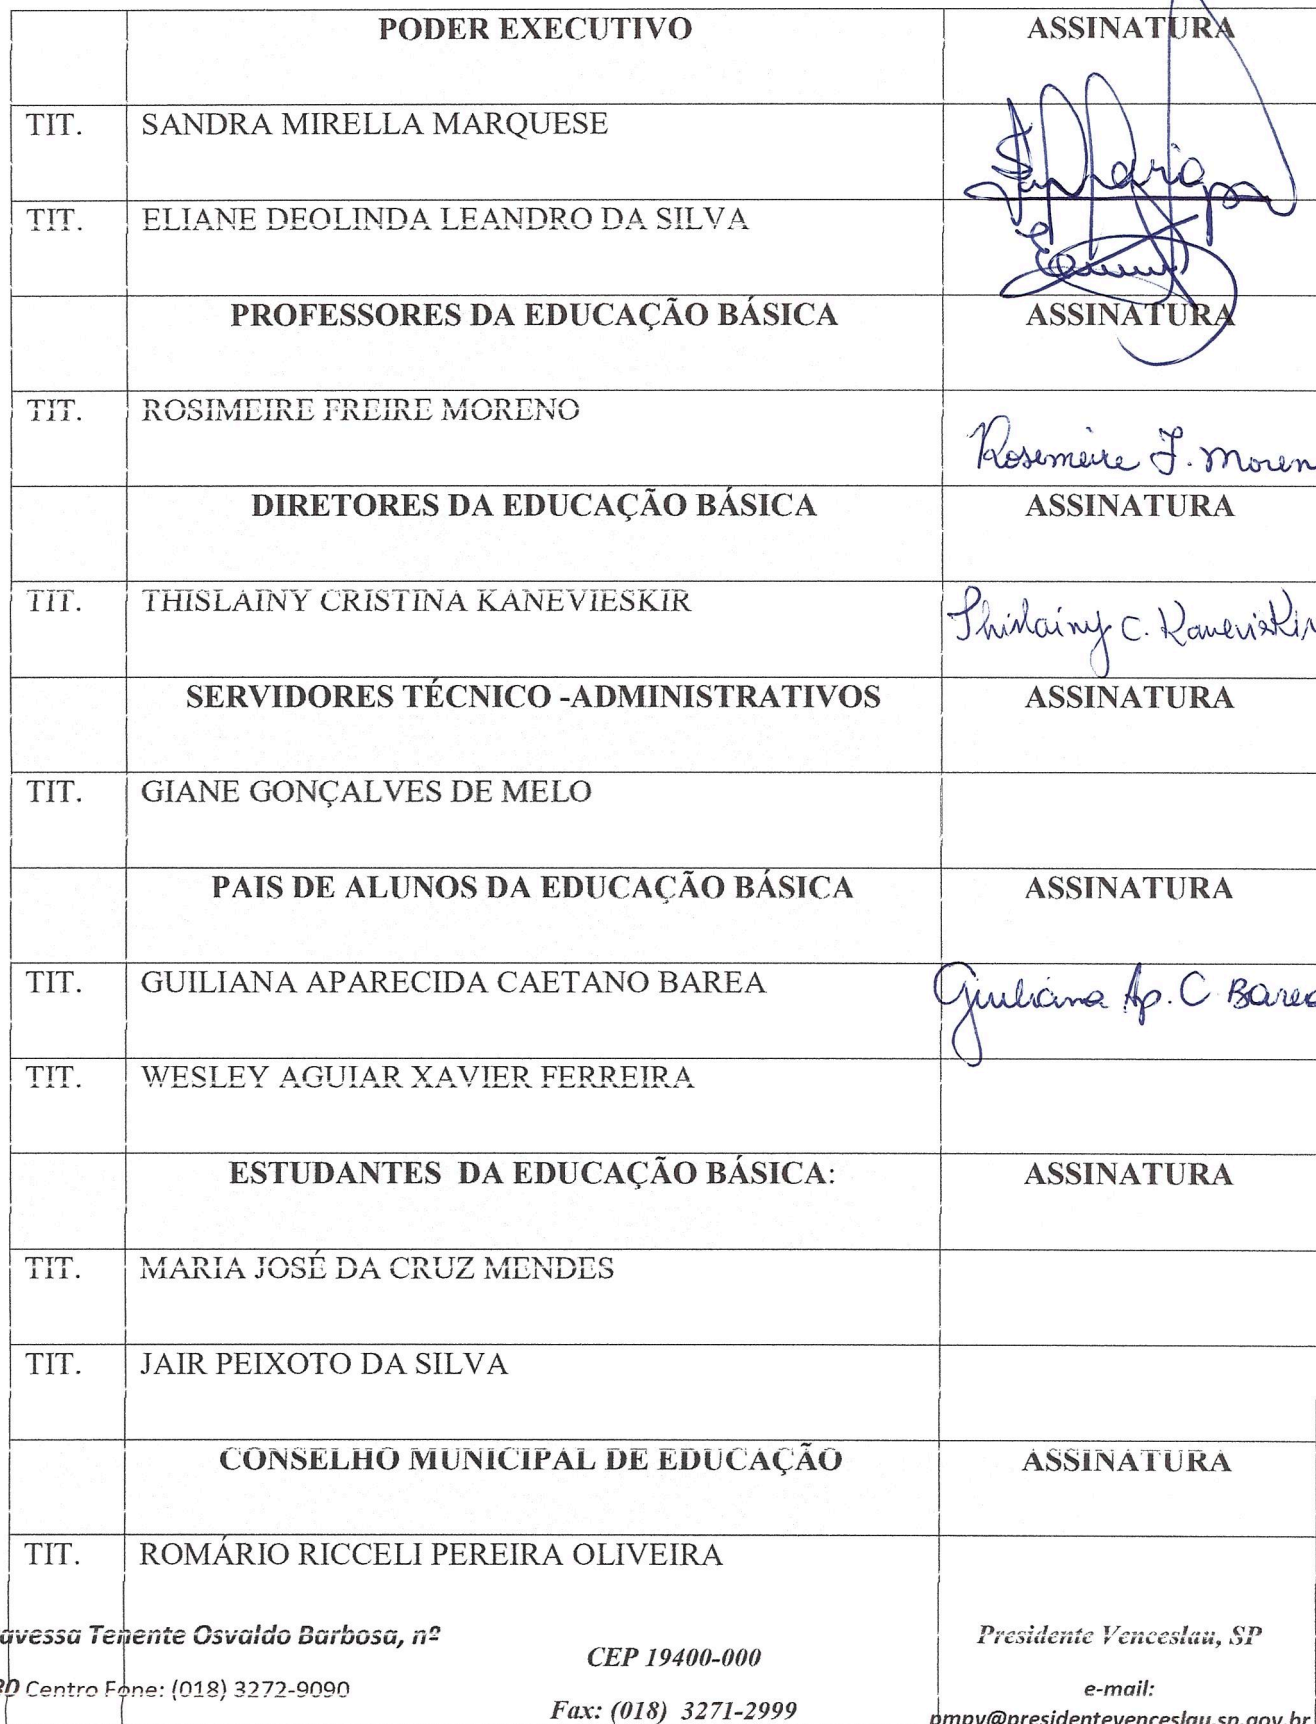 PODER EXECUTIVO ASSINATURA
TIT. SANDRA MIRELLA MARQUESE
TIT. ELIANE DEOLINDA LEANDRO DA SILVA
PROFESSORES DA EDUCAÇÃO BÁSICA ASSINATURA
TIT. ROSIMEIRE FREIRE MORENO Rosemeire F. Moren
DIRETORES DA EDUCAÇÃO BÁSICA ASSINATURA
TIT. THISLAINY CRISTINA KANEVIESKIR Thislainy C. Kanevieskir
SERVIDORES TÉCNICO -ADMINISTRATIVOS ASSINATURA
TIT. GIANE GONÇALVES DE MELO
PAIS DE ALUNOS DA EDUCAÇÃO BÁSICA ASSINATURA
TIT. GUILIANA APARECIDA CAETANO BAREA Giuliana Ap. C Barea
TIT. WESLEY AGUIAR XAVIER FERREIRA
ESTUDANTES DA EDUCAÇÃO BÁSICA: ASSINATURA
TIT. MARIA JOSÉ DA CRUZ MENDES
TIT. JAIR PEIXOTO DA SILVA
CONSELHO MUNICIPAL DE EDUCAÇÃO ASSINATURA
TIT. ROMÁRIO RICCELI PEREIRA OLIVEIRA
avessa Tenente Osvaldo Barbosa, nº
Centro Fone: (018) 3272-9090
CEP 19400-000
Fax: (018) 3271-2999
Presidente Venceslau, SP
e-mail:
pmpv@presidentevenceslau.sp.gov.br